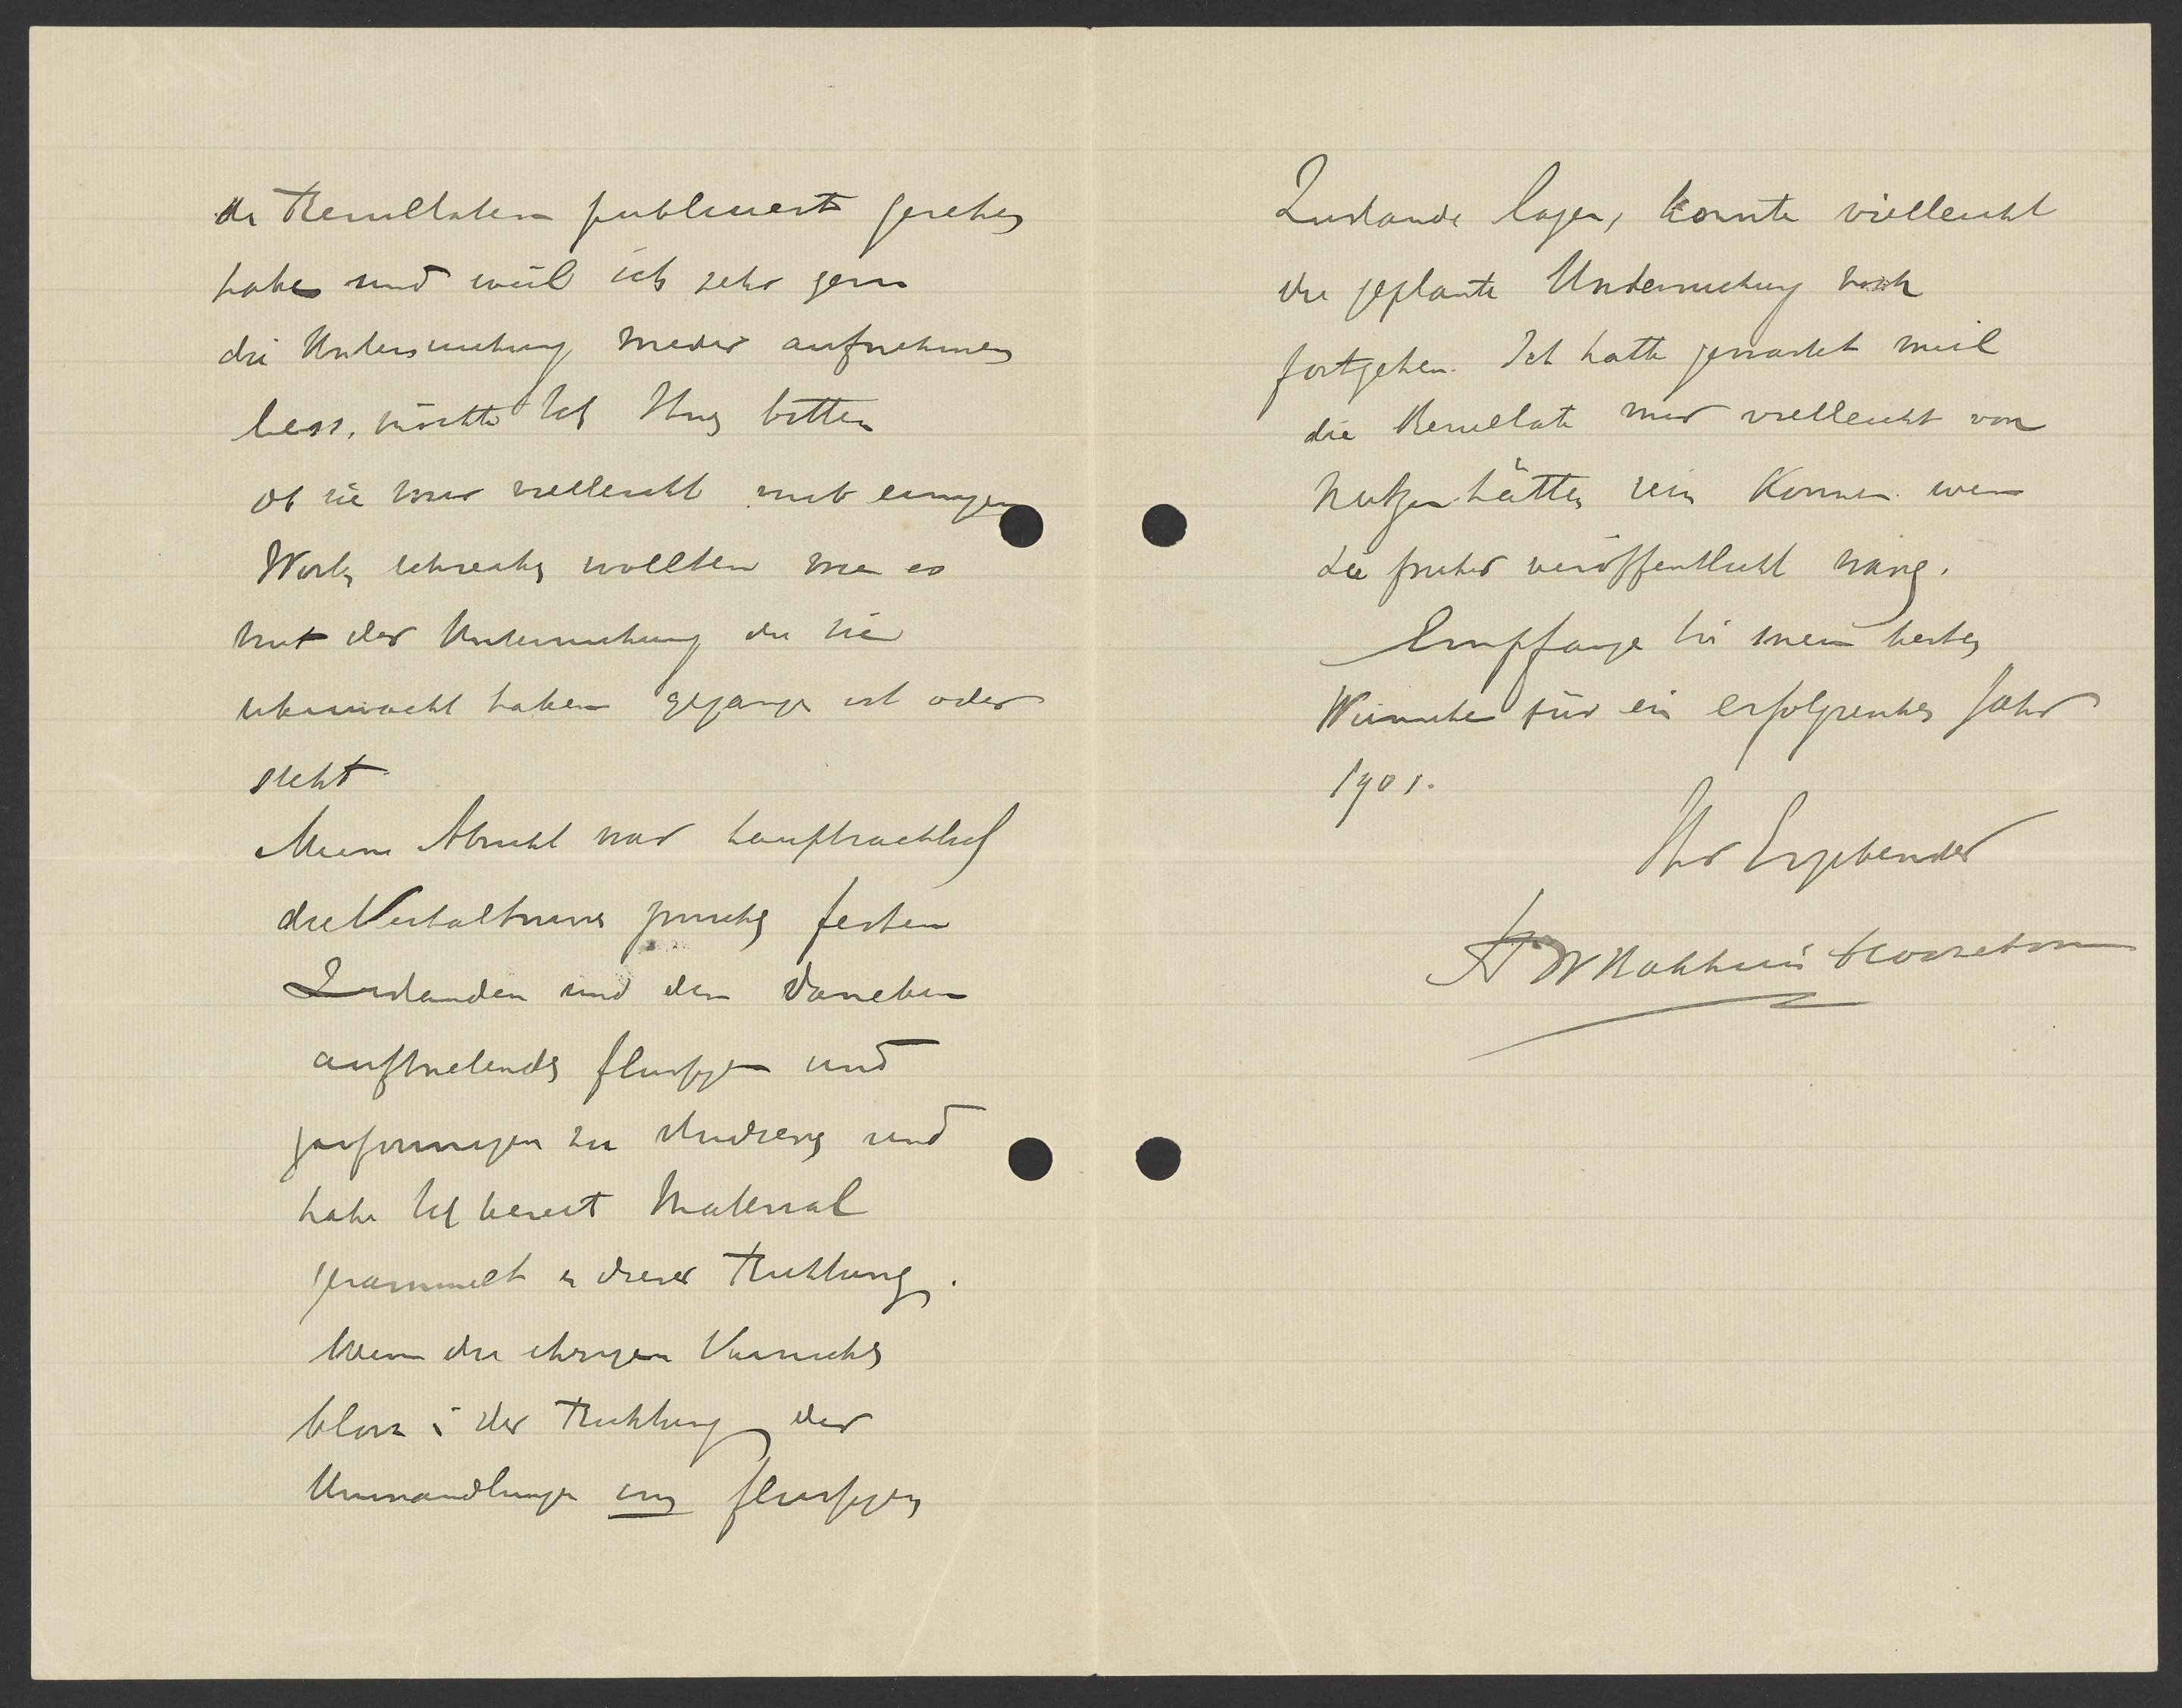 die Resultaten publiciert gesehen
habe und weil ich sehr gern
die Untersuchung wieder aufnehmen
liess, möchte ich Ihnen bitten
ob sie mir vielleicht mit einigen
Worten schreiben wollten wie es
mit der Untersuchung die sie
gegangen ist oder
steht
Meine Absicht war hauptsachlich
die Verhaltnisse zwischen festen
Zustanden und den daneben
auftretenden flussigen und
gasformigen zu studieren und
habe ich bereit Material
gesammelt in dieser Richtung.
Wenn die ihrigen Versuche
bloss in der Richtung der
Umwandlungen im flussigen
Zustande lagen, konnte vielleicht
die geplante Untersuchung noch
fortgehen. Ich hatte gewartet weil
die Resultate mir vielleicht von
Nutzen hätten sein konnen wenn
sie fruher veröffentlicht waren.
Empfange Sie meine besten
Wünsche für ein erfolgreiches Jahr
1901.
Ihr Ergebender
HW Bakhuis Roozeboom